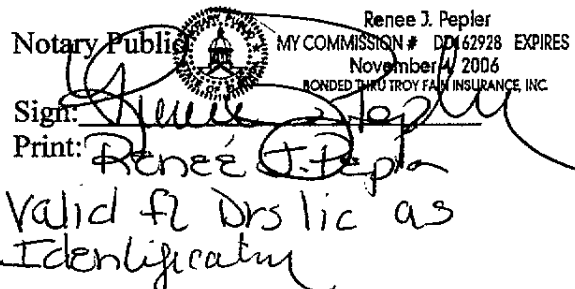 Renee J. Pepler
Notary Public
MY COMMISSION # DD162928 EXPIRES
November 4, 2006
BONDED THRU TROY FAIN INSURANCE, INC.
Sign: Renee J Pepler
Print: Reneé J. Pepler
Valid fl Drs lic as
Identificatn